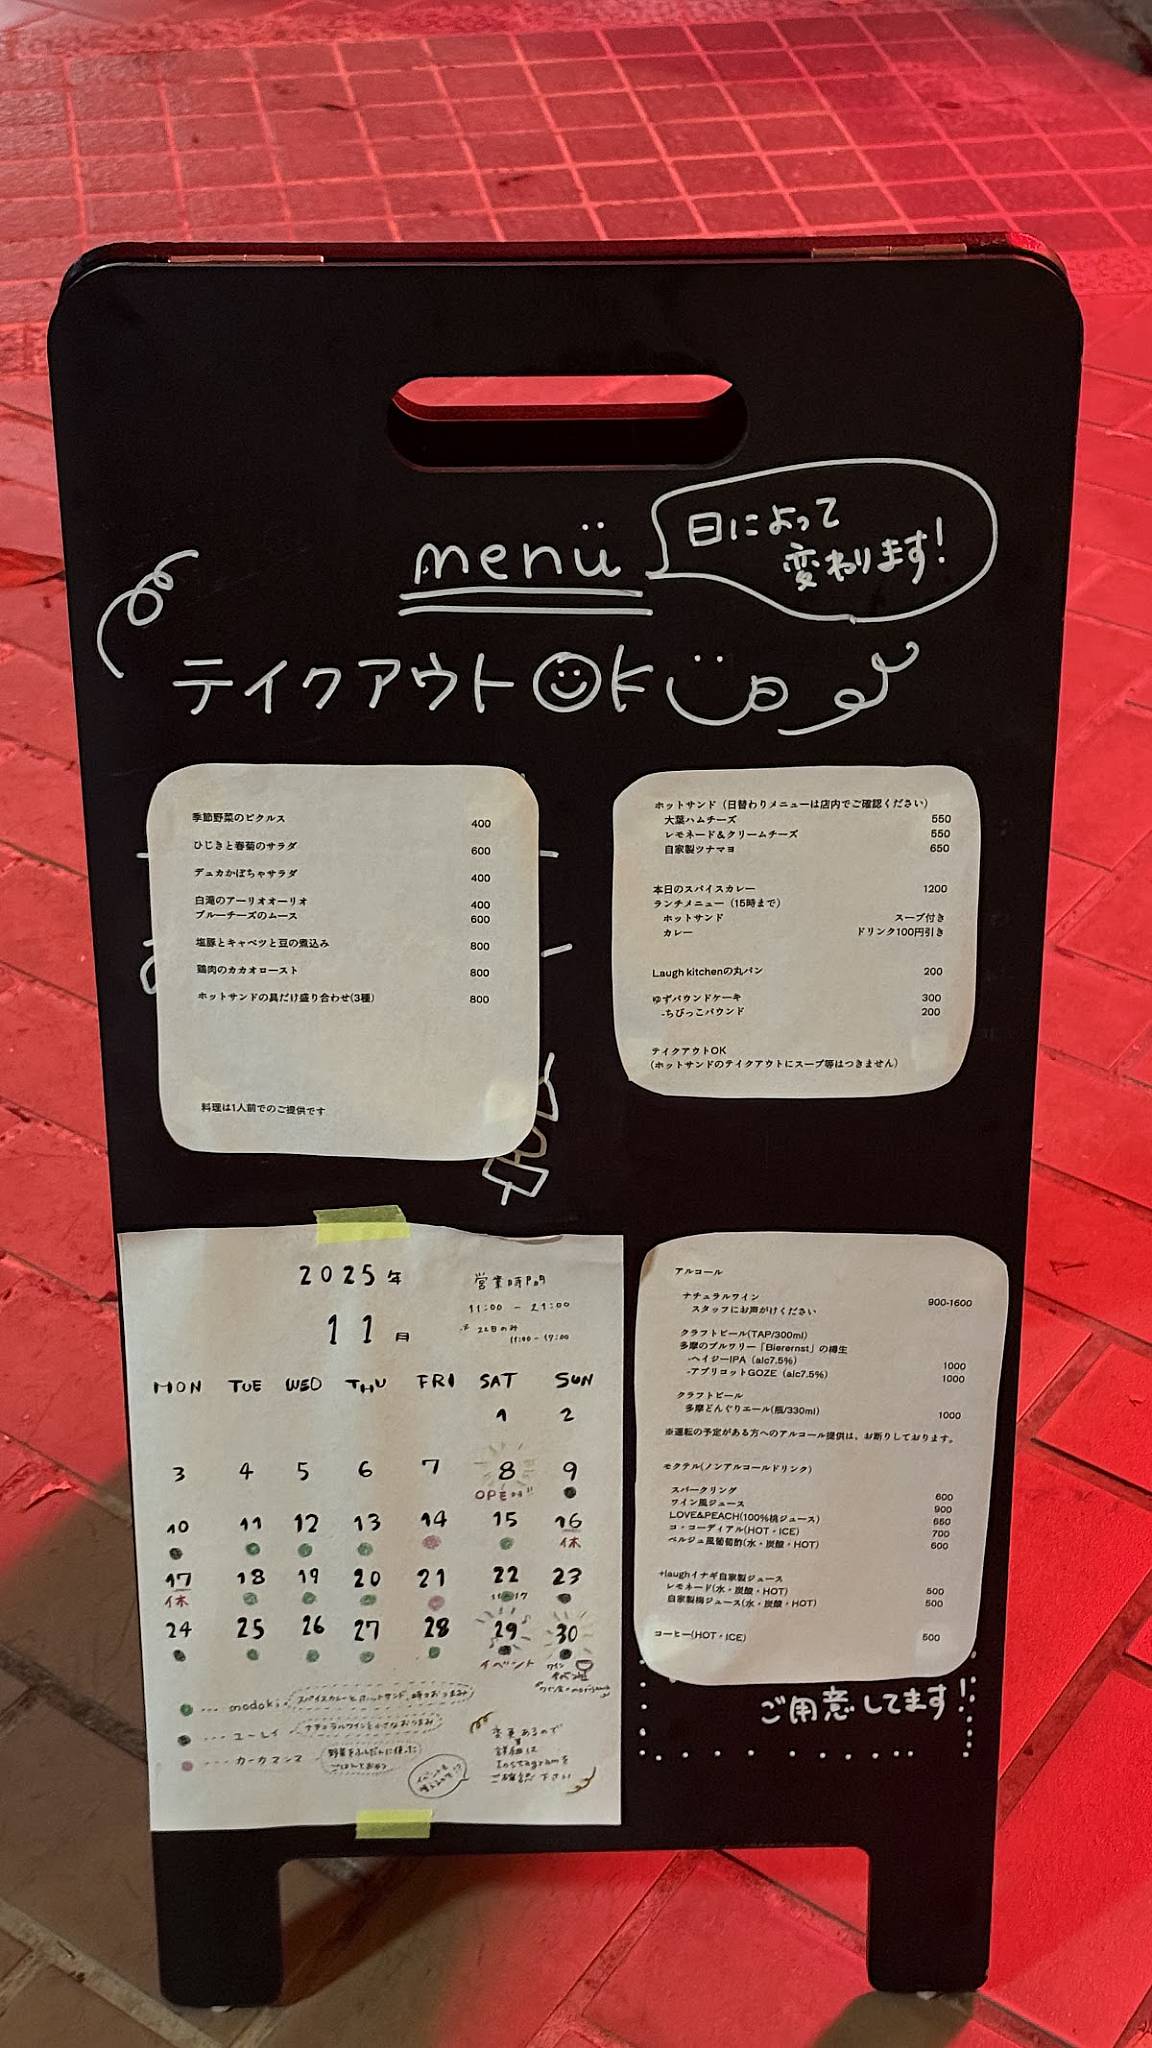 menü
日によって
変わります!
テイクアウトOK
季節野菜のピクルス 400
ひじきと春菊のサラダ 600
デュカかぼちゃサラダ 400
白滝のアーリオオーリオ 400
ブルーチーズのムース 600
塩豚とキャベツと豆の煮込み 800
鶏肉のカカオロースト 800
ホットサンドの具だけ盛り合わせ(3種) 800
料理は1人前でのご提供です
ホットサンド（日替わりメニューは店内でご確認ください）
大葉ハムチーズ 550
レモネード＆クリームチーズ 550
自家製ツナマヨ 650
本日のスパイスカレー 1200
ランチメニュー（15時まで）
ホットサンド スープ付き
カレー ドリンク100円引き
Laugh kitchenの丸パン 200
ゆずパウンドケーキ 300
-ちびっこパウンド 200
テイクアウトOK
（ホットサンドのテイクアウトにスープ等はつきません）
2025年
11月
営業時間
11:00 - 21:00
22日のみ
11:00 - 17:00
MON TUE WED THU FRI SAT SUN
1 2
3 4 5 6 7 8 9
OPEN
10 11 12 13 14 15 16
休
17 18 19 20 21 22 23
休 11-17
24 25 26 27 28 29 30
イベント ワイン
modoki スパイスカレーとホットサンド、時々おつまみ
ユーレイ ナチュラルワインと小さなおつまみ
カーカマンマ 野菜をふんだんに使った
ごはんとおやつ
変更あるので
詳細は
Instagramを
ご確認下さい
アルコール
ナチュラルワイン 900-1600
スタッフにお声がけください
クラフトビール(TAP/300ml)
多摩のブルワリー「Bierernst」の樽生
-ヘイジーIPA（alc7.5%） 1000
-アプリコットGOZE（alc7.5%） 1000
クラフトビール
多摩どんぐりエール(瓶/330ml) 1000
※運転の予定がある方へのアルコール提供は、お断りしております。
モクテル(ノンアルコールドリンク)
スパークリング 600
ワイン風ジュース 900
LOVE&PEACH(100%桃ジュース) 650
コ・コーディアル(HOT・ICE) 700
ベルジュ風葡萄酢(水・炭酸・HOT) 600
+laughイナギ自家製ジュース
レモネード(水・炭酸・HOT) 500
自家製梅ジュース(水・炭酸・HOT) 500
コーヒー(HOT・ICE) 500
ご用意してます!